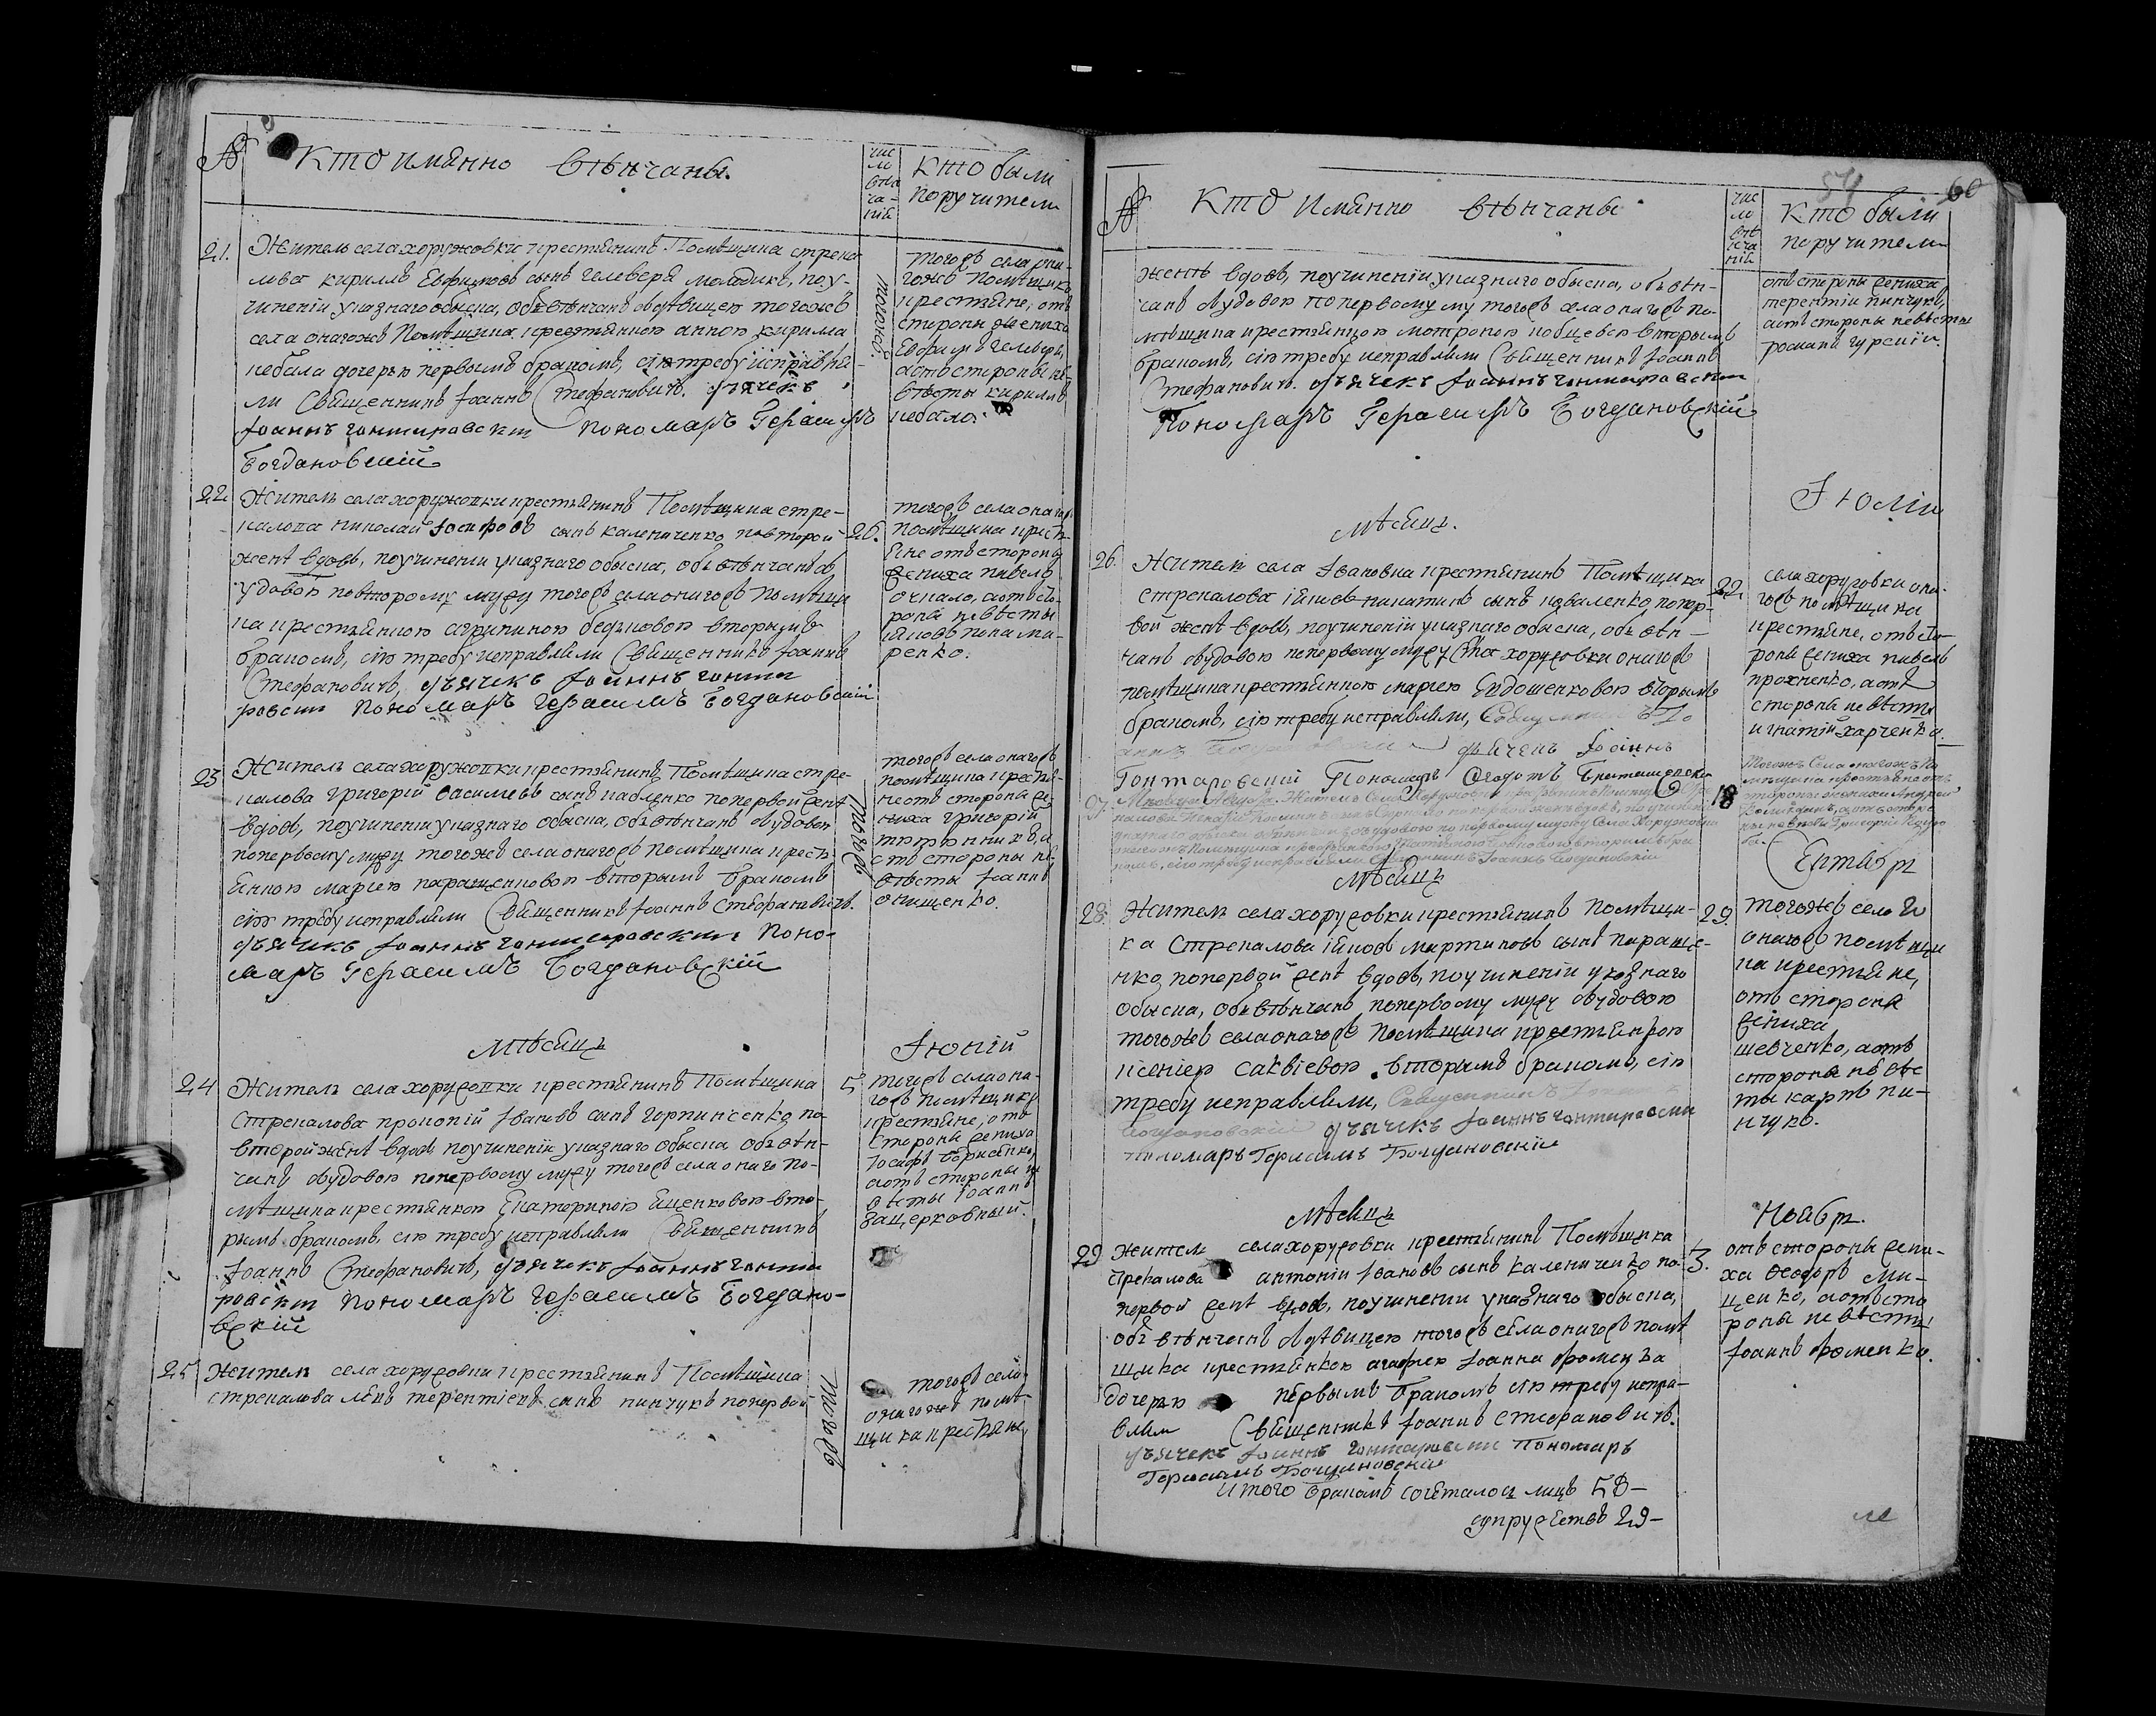 №
Кто имянно вѣнчаны.
чис
ло
вѣн
ча-
нія
Кто были
поручители
21.
Житель села хоружовки крестьянинъ Помѣщика стрека
лова кирилъ Евфимовъ сынъ гелевера молодикъ, по у-
чиненіи указнаго обыска, обвѣнчанъ здѣвицею тогожъ
села онагожъ Помѣщика крестьянкою анною кирила
небала дочерью первымъ бракомъ, сію требу исправля-
ли Священникъ Іоаннъ Стефановичъ. дьячекъ
Іоаннъ гонтаровскии Пономаръ Герасимъ
Богдановскій
тогожъ
тогожъ села она-
гожъ помѣщика
крестьяне, отъ
стороны жениха
Евфимъ гелевера,
аотъ стороны не-
вѣсты кирилъ
небало.
22.
Житель села хоружовки крестьянинъ Помѣщика стре-
калова николай Іосифовъ сынъ калениченко, повторой
женѣ вдовъ, поучинении указнаго обыска, обвѣнчанъ з
удовою повторому мужу тогожъ села онагожъ помѣщи
ка крестьянкою агрипиною вторымъ
бракомъ, сію требу исправляли Священникъ Іоаннъ
Стефановичъ, дьячекъ Іоаннъ гонта
ровски Пономаръ Герасимъ Богдановскій
26.
тогожъ села онагожъ
помѣщика кресть-
яне отъ стороны
жениха павелъ
очкало, аотъ сто-
роны невѣсты
яковъ понама-
ренко.
23
Житель села хоружовки крестьянинъ Помѣщика стре-
калова григорій василіевъ сынъ павленко попервой женѣ
вдовъ, поучиненіи указнаго обыска, обвѣнчанъ звудовою
попервому мужу тогожъ села онагожъ помѣщика кресть-
янкою маріею паращенковою вторымъ бракомъ
сію требу исправляли Священникъ Іоаннъ Стефановичъ.
дьячекъ Іоаннъ гонтаровскии Поно-
маръ Герасимъ Богдановскій
тогожъ
тогожъ села онагожъ
помѣщика крестья-
не отъ стороны же-
ниха григорій
аотъ стороны не-
вѣсты Іоаннъ
онищенко.
Мѣсяцъ
Іюній
24
Житель села хоружовки крестьянинъ Помѣщика
Стрекалова прокопій Ивановъ сынъ горпинченко по
второй женѣ вдовъ, поучиненіи указнаго обыска обвѣн-
чанъ звудовою попервому мужу тогожъ села онаго по-
мѣщика крестьянкою Екатериною Яценковою вто-
рымъ бракомъ, сію требу исправляли Священникъ
Іоаннъ Стефановичъ, дьячекъ Іоаннъ гонта
ровскии Пономаръ Герасимъ Богдано-
вскій
5
тогожъ села она-
гожъ помѣщика
крестьяне, отъ
стороны жениха
Іосифъ борисенко,
аотъ стороны не
вѣсты Іоаннъ
зацерковный.
25
Житель села хоружовки крестьянинъ Помѣщика
стрекалова левъ терентіевъ сынъ пинчукъ попервой
тогожъ
тогожъ села
онагожъ помѣ-
щика крестьяне,
54
60
№
Кто имянно вѣнчаны
чис
ло
вѣн
ча
нія
Кто были
поручители
женѣ вдовъ, поучиненіи указнаго обыска, обвѣн-
чанъ звудовою попервому му тогожъ села онагожъ по-
мѣщика крестьянкою мотроною вторымъ
бракомъ, сію требу исправляли Священникъ Іоаннъ
Стефановичъ. дьячекъ Іоаннъ гонтаровскии
Пономаръ Герасимъ Богдановскій
отъ стороны жениха
терентіи пинчукъ,
аотъ стороны невѣсты
романъ
Мѣсяцъ.
Іюлій
26.
Житель села Ивановка крестьянинъ Помѣщика
стрекалова іаковъ никитинъ сынъ коваленко, попер-
вой женѣ вдовъ, поучиненіи указнаго обыска, обвѣн-
чанъ звудовою попервому мужу Села хоружовки онагожъ
помѣщика крестьянкою маріею Евдошенковою вторымъ
бракомъ, сію требу исправляли, Священникъ Іо
аннъ Богдановскій дьячекъ Іоаннъ
Гонтаровскій Пономаръ
22.
села хоружовки она-
гожъ помѣщика
крестьяне, отъ сто-
роны жениха павелъ
прохненко, аотъ
стороны невѣсты
игнатій харченко.
27.
Мѣсяца Августа. Житель Села Хоружовки крестьянинъ Помѣщика
указнаго обыска обвѣнчанъ звудовою по первому мужу Села Хоружовки
онагожъ Помѣщика вторымъ бра
комъ, сію требу исправляли Священникъ Іоаннъ Богдановскій
18
Тогожъ Села онагожъ По
мѣщика крестьяне отъ
стороны жениха Андрей
аотъ сторо
ны невѣсты Григорій
Мѣсяцъ
Септябрь
28.
Житель села хоружовки крестьянинъ помѣщи-
ка Стрекалова іаковъ мартиновъ сынъ параще-
нко, попервой женѣ вдовъ, поучиненіи указнаго
обыска, обвѣнчанъ попервому мужу звудовою
тогожъ села онагожъ помѣщика крестьянкою
ксеніею савкіевою вторымъ бракомъ, сію
требу исправляли, Священникъ Іоаннъ
Богдановскій дьячекъ Іоаннъ гонтаровски
пономаръ Герасимъ Богдановскій
29.
тогожъ села и
онагожъ помѣщи
ка крестьяне,
отъ стороны
жениха
шевченко, аотъ
стороны невѣс
ты карпъ пи-
нчукъ.
Мѣсяцъ
Ноябрь.
29
Житель села хоружовки крестьянинъ Помѣщика
Стрекалова антоніи Ивановъ сынъ калениченко по-
первой женѣ вдовъ, поучинении указнаго обыска,
обвѣнчанъ здѣвицею тогожъ села онагожъ помѣ
щика крестьянкою агафіею Іоанна фоменка
дочерью первымъ бракомъ сію требу испра-
вляли Священникъ Іоаннъ Стефановичъ.
дьячекъ Іоаннъ гонтаровски пономаръ
Герасимъ Богдановскій
3.
отъ стороны жени-
ха федоръ ми-
щенко, аотъ сто
роны невѣсты
Іоаннъ фоменко.
итого бракомъ сочеталось лицъ 58-
супружествъ 29-